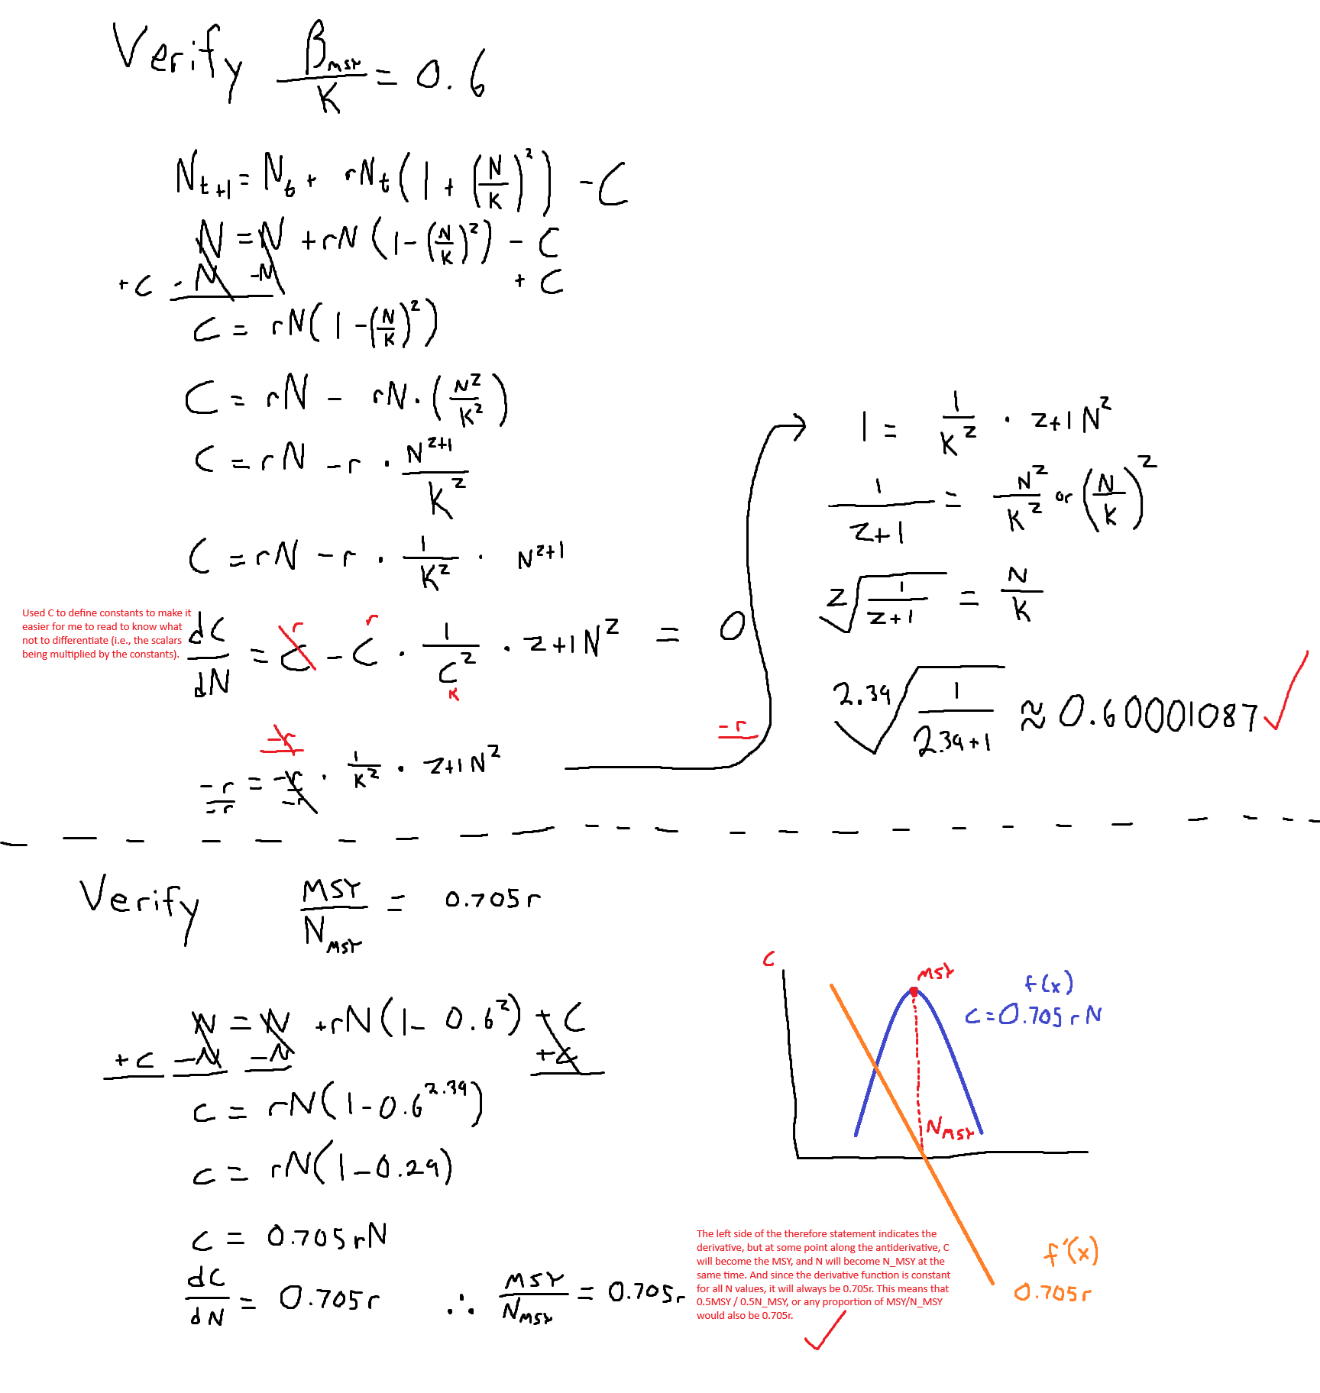 Verify β_MSY / K = 0.6
N_t+1 = N_t + rN_t (1 + (N/K)^z) - C
N = N + rN (1 - (N/K)^z) - C
+C - N -N + C
C = rN(1 - (N/K)^z)
C = rN - rN · (N^z/K^z)
C = rN - r · N^z+1 / K^z
C = rN - r · 1/K^z · N^z+1
Used C to define constants to make it
easier for me to read to know what
not to differentiate (i.e., the scalars
being multiplied by the constants).
dC/dN = C r - C r · 1/C^z K · z+1 N^z = 0
-r
-r/-r = -r/-r · 1/K^z · z+1 N^z
-r
1 = 1/K^z · z+1 N^z
1/z+1 = N^z/K^z or (N/K)^z
z√(1/z+1) = N/K
2.39√(1/2.39+1) ≈ 0.60001087 ✓
Verify MSY / N_MSY = 0.705r
N = N + rN(1 - 0.6^z) + C
+C -N -N +C
C = rN(1 - 0.6^2.39)
C = rN(1 - 0.29)
C = 0.705rN
dC/dN = 0.705r ∴ MSY / N_MSY = 0.705r
C
MSY
f(x)
C = 0.705rN
N_MSY
f'(x)
0.705r
The left side of the therefore statement indicates the
derivative, but at some point along the antiderivative, C
will become the MSY, and N will become N_MSY at the
same time. And since the derivative function is constant
for all N values, it will always be 0.705r. This means that
0.5MSY / 0.5N_MSY, or any proportion of MSY/N_MSY
would also be 0.705r.
✓